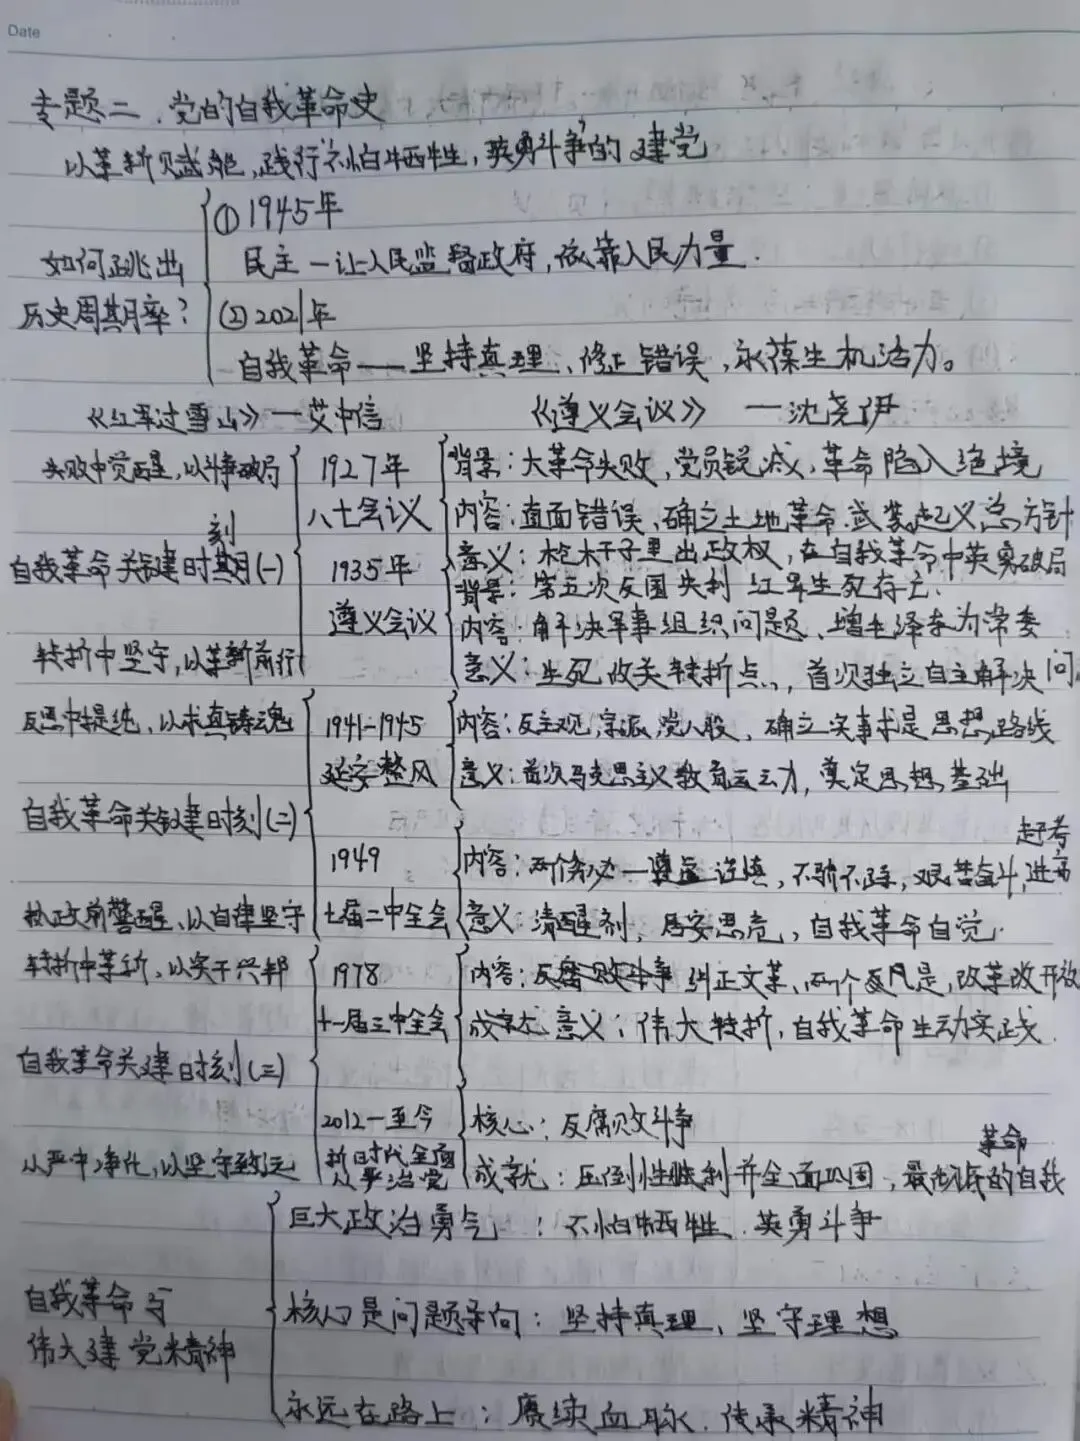 Date
专题二、党的自我革命史
以革新赋能,践行“不怕牺牲,英勇斗争”的建党
① 1945年
如何跳出
民主—让人民监督政府,依靠人民力量.
历史周期率?
② 2021年
自我革命——坚持真理、修正错误,永葆生机活力。
《红军过雪山》—艾中信 《遵义会议》—沈尧伊
失败中觉醒,以斗争破局
1927年
背景:大革命失败,党员锐减,革命陷入绝境
八七会议
内容:直面错误、确立土地革命.武装起义总方针
刻
自我革命关键时期(一)
1935年
意义:枪杆子里出政权,在自我革命中英勇破局
背景:第五次反围失利 红军生死存亡.
遵义会议
内容:解决军事组织问题、增毛泽东为常委
转折中坚守,以革新前行
意义:生死攸关转折点,首次独立自主解决问
反思中提纯、以求真铸魂
1941-1945
内容:反主观,宗派,党八股,确立实事求是思想路线
延安整风
意义:首次马克思主义教育运动,奠定思想基础
自我革命关键时刻(二)
赶考
1949
内容:两个务必—谦虚谨慎,不骄不躁,艰苦奋斗,进京
执政前警醒、以自律坚守
七届二中全会
意义:清醒剂,居安思危,自我革命自觉.
转折中革新、以实干兴邦
1978
内容: 纠正文革、两个凡是,改革开放
十一届三中全会
意义:伟大转折,自我革命生动实践.
自我革命关键时刻(三)
2012-至今
核心:反腐败斗争
革命
新时代全面
从严治党
从严中净化,以坚守致远
成就:压倒性胜利并全面巩固,最彻底的自我
巨大政治勇气:不怕牺牲、英勇斗争
自我革命与
核心是问题导向:坚持真理、坚守理想
伟大建党精神
永远在路上:赓续血脉.传承精神